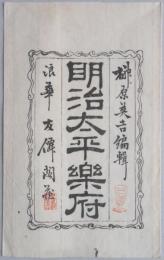 榊原英吉編輯
明治太平樂府
浪華 左僊閣